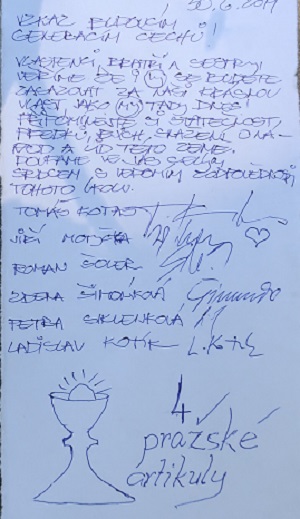 30.6.2019
VZKAZ BUDOUCÍM
GENERACÍM ČECHŮ!
VLASTENCI, BRATŘI A SESTRY!
VĚŘÍME, ŽE I VY SE BUDETE
ZASAZOVAT ZA NAŠI KRÁSNOU
VLAST, JAKO MY TADY DNES!
PŘIPOMÍNEJTE SI STATEČNOST
PŘEDKŮ, JEJICH SNAŽENÍ O NÁ-
ROD A LID TÉTO ZEMĚ.
DOUFÁME VE VÁS VŠEMI
SRDCEM S VĚDOMÍM ZODPOVĚDNOSTI
TOHOTO ÚKOLU.
TOMÁŠ KOTAS
JIŘÍ MOTEJKA
ROMAN ŠOLER
ZDENA ŠIMŮNKOVÁ
PETRA SKLENKOVÁ
LADISLAV KOTÍK L. Kotík
4
pražské
artikuly